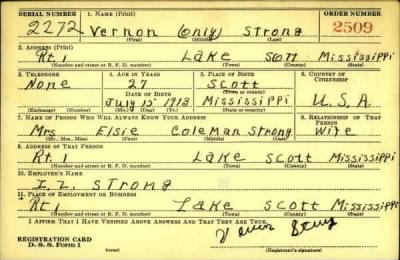 SERIAL NUMBER 1. NAME (Print) ORDER NUMBER
2272 Vernon (only) Strong 2509
(First) (Middle) (Last)
2. ADDRESS (Print)
Rt. 1 Lake Scott Mississippi
(Number and street or R. F. D. number) (Town) (County) (State)
3. TELEPHONE 4. AGE IN YEARS 5. PLACE OF BIRTH 6. COUNTRY OF CITIZENSHIP
None 27 Scott
DATE OF BIRTH (Town or county)
July 15 1913 Mississippi U.S.A.
(Exchange) (Number) (Mo.) (Day) (Yr.) (State or country)
7. NAME OF PERSON WHO WILL ALWAYS KNOW YOUR ADDRESS 8. RELATIONSHIP OF THAT PERSON
Mrs. Elsie Coleman Strong Wife
(Mr., Mrs., Miss) (First) (Middle) (Last)
9. ADDRESS OF THAT PERSON
Rt. 1 Lake Scott Mississippi
(Number and street or R. F. D. number) (Town) (County) (State)
10. EMPLOYER'S NAME
I. L. Strong
11. PLACE OF EMPLOYMENT OR BUSINESS
Rt 1 Lake Scott Mississippi
(Number and street or R. F. D. number) (Town) (County) (State)
I AFFIRM THAT I HAVE VERIFIED ABOVE ANSWERS AND THAT THEY ARE TRUE.
REGISTRATION CARD
D. S. S. Form 1 (Registrant's signature)